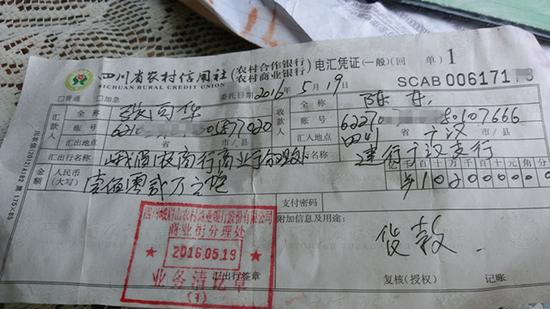 四川省农村信用社 (农村合作银行 农村商业银行) 电汇凭证(一般)(回 单) 1
SICHUAN RURAL CREDIT UNION
SCAB006171
□普通 □加急 委托日期 2016年5月19日
汇款人 全称
收款人 全称 陈
账号 6221 0577020
账号 60107666
汇出地点 省 市/县
汇入地点 四川省 广汉市/县
汇出行名称 峨眉农商行商业街分理处
建行广汉支行
金额 人民币(大写) 壹佰零贰万元
¥102000000
支付密码
附加信息及用途:
货款
四川峨眉山农村商业银行股份有限公司
商业街分理处
2016.05.19
业务清讫章
(1)
汇出行签章
复核(授权) 记账